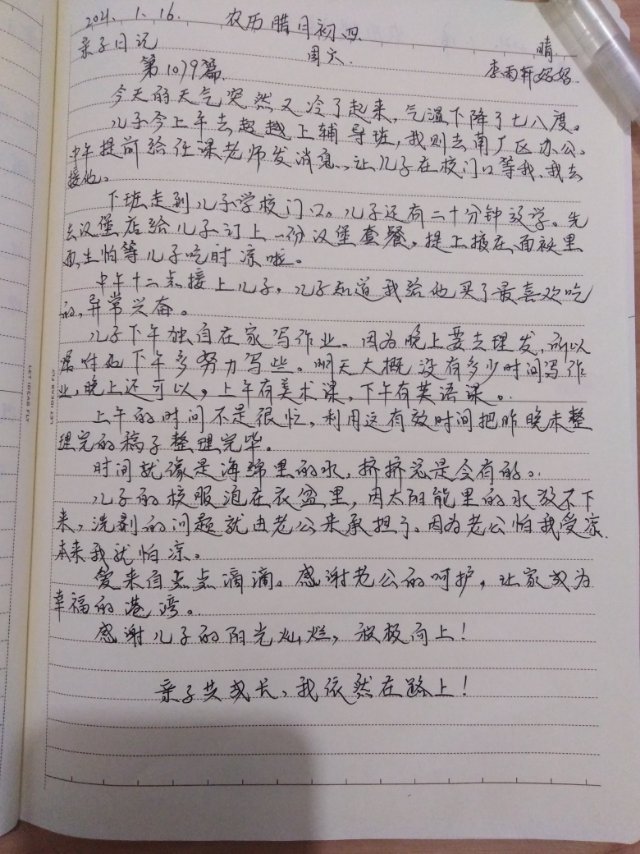 2021. 1. 16. 农历腊月初四
亲子日记 周六. 晴
第1079篇 李雨轩妈妈.
今天的天气突然又冷了起来,气温下降了七八度。
儿子今上午去超越上辅导班,我则去南厂区办公。
中午提前给任课老师发消息,让儿子在校门口等我,我去
接他。
下班走到儿子学校门口。儿子还有二十分钟放学。先
去汉堡店给儿子订上一份汉堡套餐,提上捂在面袄里
面生怕等儿子吃时凉啦。
中午十二点接上儿子,儿子知道我给他买了最喜欢吃
的,异常兴奋。
儿子下午独自在家写作业。因为晚上要去理发,所以
嘱咐他下午多努力写些。明天大概没有多少时间写作
业,晚上还可以,上午有美术课,下午有英语课。
上午的时间不是很忙,利用这有效时间把昨晚未整
理完的稿子整理完毕。
时间就像是海绵里的水,挤挤总是会有的。
儿子的校服泡在衣盆里,因太阳能里的水放不下
来,洗刷的问题就由老公来承担了。因为老公怕我受凉.
本来我就怕凉。
爱来自点点滴滴。感谢老公的呵护,让家成为
幸福的港湾。
感谢儿子的阳光灿烂,积极向上!
亲子共成长,我依然在路上!